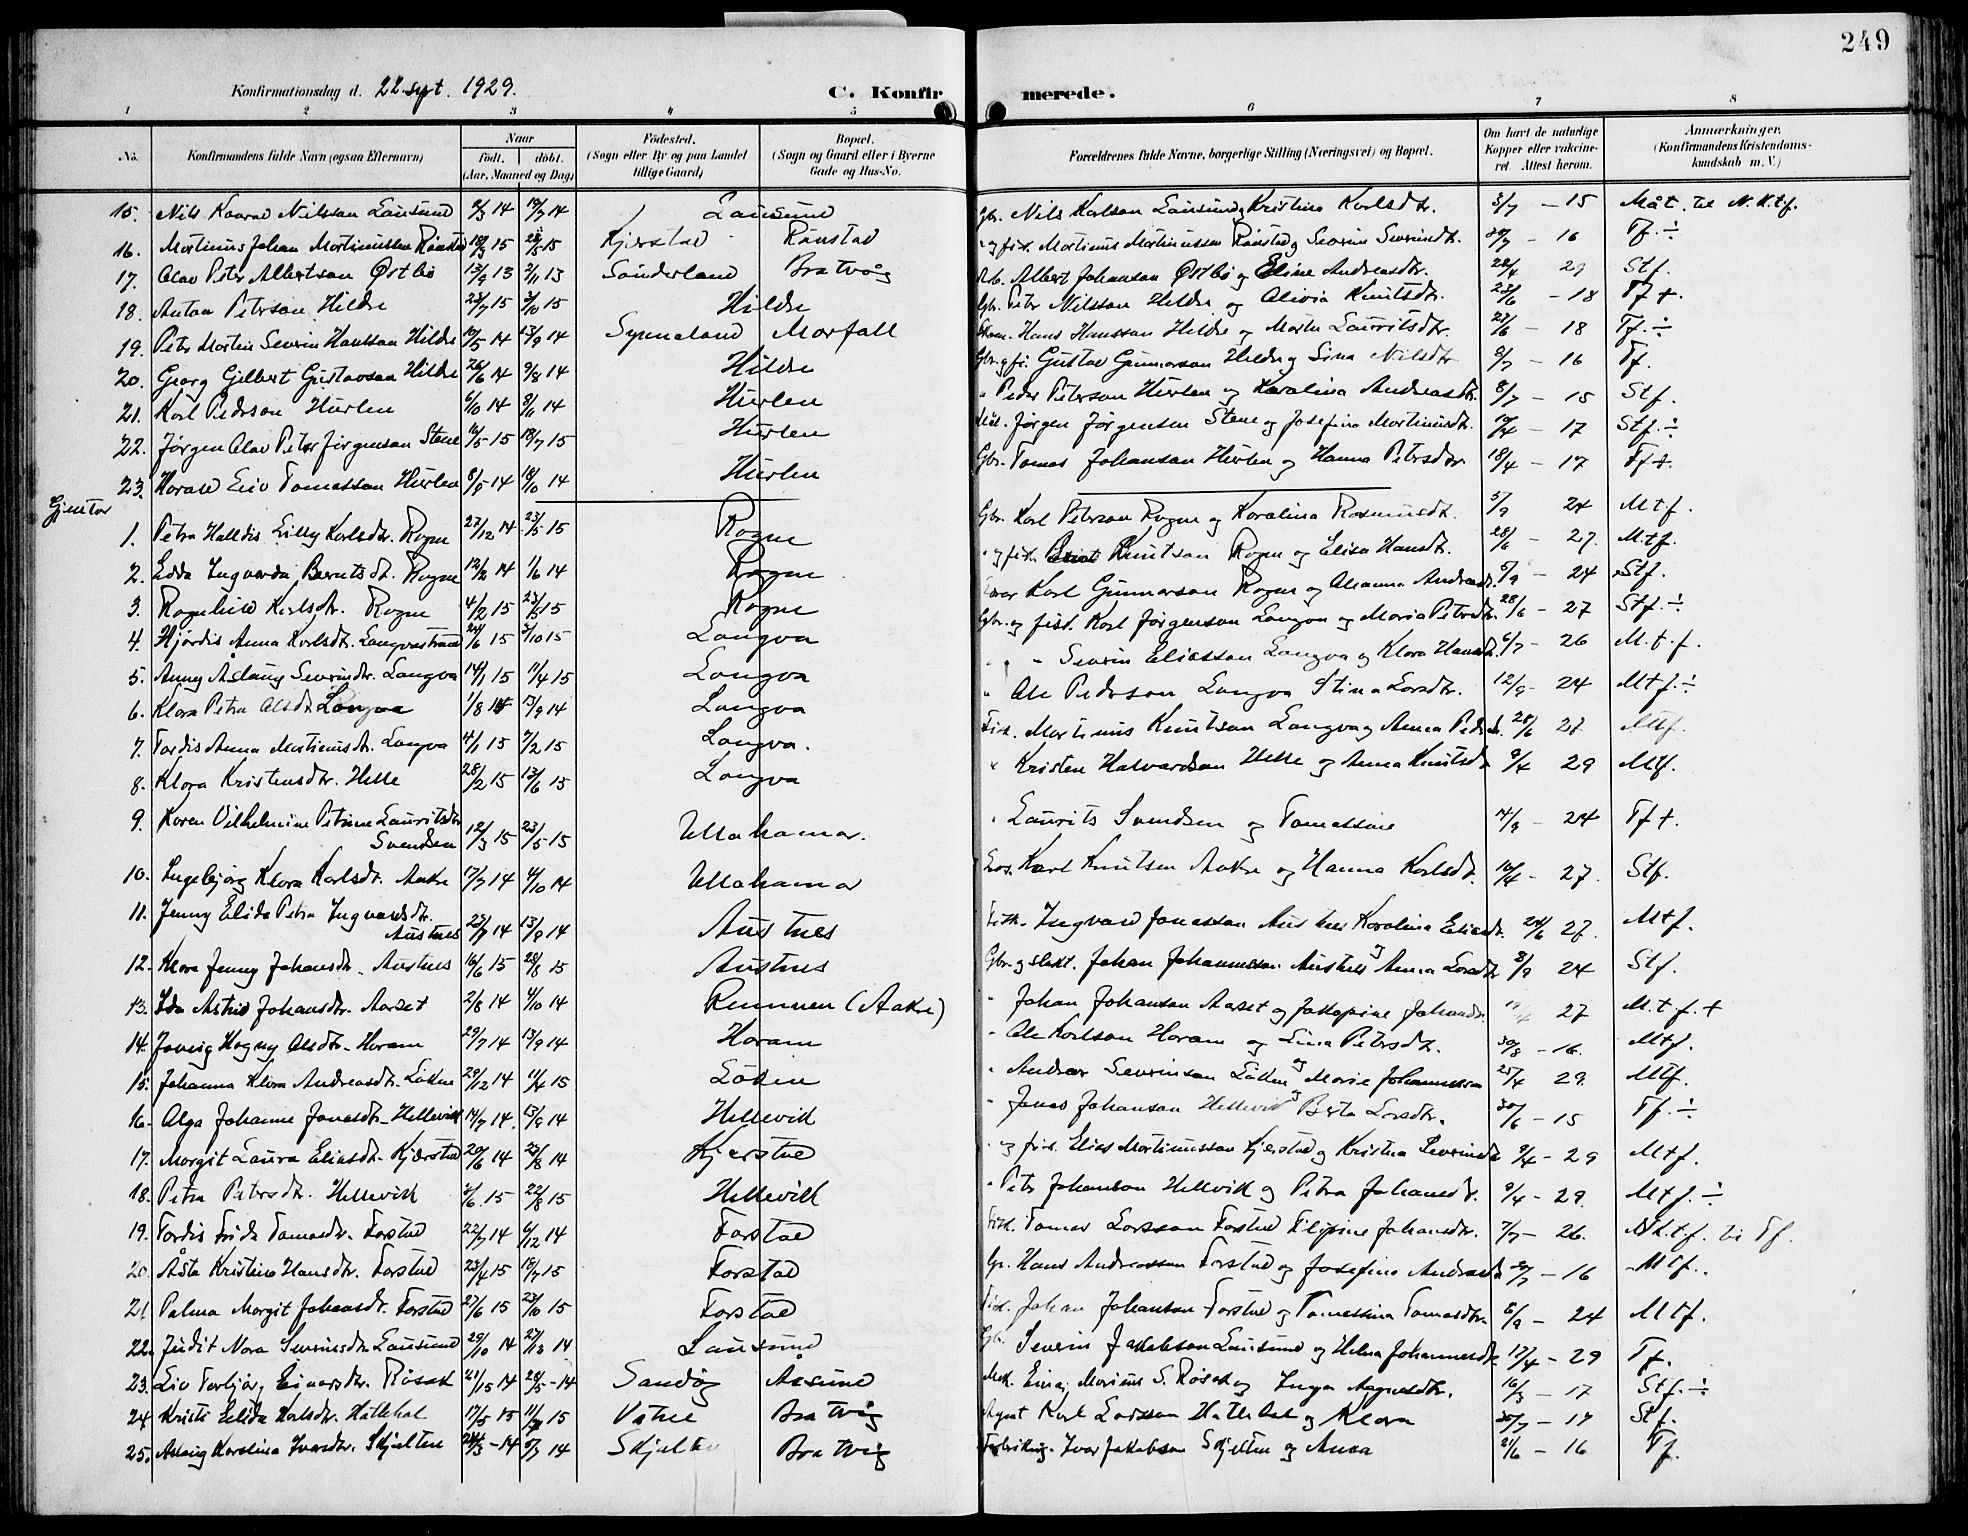 249
Konfirmationsdag d. 22 sept. 1929.
C. Konfirmerede.
1 2 3 4 5 6 7 8
No. Konfirmandens fulde Navn (ogsaa Efternavn) Naar født. døbt. (Aar, Maaned og Dag) Fødested. (Sogn eller By og paa Landet tillige Gaard) Bopæl. (Sogn og Gaard eller i Byerne Gade og Hus-No. Forældrenes fulde Navne, borgerlige Stilling (Næringsvei) og Bopæl. Om havt de naturlige Kopper eller vaccineret. Attest herom. Anmærkninger. (Konfirmandens Kristendomskundskab m. V.)
15. Nils Konrad Nilsson Lausund 14 14 Lausund Gbr. Nils Karlson Lausund og Kristina Karlsdtr. 3/7 – 15 Måt. til N.K.t.f.
16. Martinus Johan Martinusson Rønstad 15 15 Kjerstad Rønstad og fisk. Martinus Martinusson Rønstad og Severine Severindtr. – 16 Tf. ÷
17. Olav Peter Albertson Østbø 13 2/11 13 Sønderland Bratvåg Albert Johanson Østbø og Eline Andreasdtr. 29 Stf.
18. Anton Peterson Hildre 23/7 15 3/10 15 Hildre Gbr. Peter Nilsson Hildre og Olivia Knutsdtr. 23/6 – 18 Tf +.
19. Peter Martin Severin Hansson Hildre 10/5 14 13/9 14 Synnaland Morfall Hans Hansson Hildre og Marta Lauritsdtr. – 18 Tf. ÷
20. Georg Gilbert Gustavson Hildre 26/6 14 9/8 14 Hildre Gbr. og fi. Gustav Gunnarson Hildre og Sina Nilsdtr. 6/7 – 16 Tf.
21. Karl Pederson Hurlen 14 14 Hurlen " Peder Peterson Hurlen og Karolina Andreasdtr. 8/7 – 15 Stf.
22. Jørgen Olav Peter Jørgenson Stene 15 18/7 15 Hurlen Jørgen Jørgensen Stene og Josefina Martinusdtr. – 17 Stf. ÷
23. Harald Eliv Tomasson Hurlen 14 18/10 14 Hurlen Gbr. Tomas Johanson Hurlen og Hanna Petersdtr. 18/4 – 17 Tf +.
Gjentor
1. Petra Halldis Lilly Karlsdtr. Rogne 27/12 14 23/5 15 Rogne Gbr. Karl Peterson Rogne og Karolina Rasmusdtr. 5/9 24 Mtf.
2. Edda Ingvarda Berntsdt. Rogne 12/2 14 1/6 14 Rogne " og fisk. Bernt Knutson Rogne og Elisa Hansdt. 28/6 – 27. M.t.f.
3. Ragnhild Karlsdtr. Rogne 4/2 15 23/5 15 Rogne Karl Gunnarson Rogne og Oleanna Andreasdt. 5/9 – 24 Stf.
4. Hjørdis Anna Karlsdtr. Longvastrand 24/6 15 3/10 15 Longva Gbr. og fisk. Karl Jørgenson Longva og Maria Petersdtr. 28/6 – 27 Stf. ÷
5. Anny Åslaug Severindtr. Longva 14/1 15 11/4 15 Longva " " Severin Eliasson Longva og Klara Hansdt. 6/7 – 26 M.t.f.
6. Klara Petra Olsdtr Longva 1/8 14 13/9 14 Longva " Ole Pederson Longva Stina Larsdtr. 12/9 – 24 Mtf. ÷
7. Tordis Anna Martinusdtr. Longva 4/1 15 7/2 15 Longva. Fisk. Martinus Knutson Longva og Anna Pedersdt. 28/6 27 Mtf.
8. Klara Kristensdtr. Helle 28/2 15 13/6 15 Longva " Kristen Halvardson Helle og Anna Knutsdt. 9/4 29 Mtf.
9. Karen Vilhelmine Petrine Lauritsdtr
Svendsen 12/3 15 23/5 15 Ullahamar. " Laurits Svendsen og Tomassine 14/9 – 24 Tf +.
10. Ingebjørg Klara Karlsdt. Aakre 17/7 14 4/10 14 Ullahamar Karl Knutsen Aakre og Hanna Karlsdt. 10/4 – 27. Stf.
11. Jenny Elida Petra Ingvardsdtr.
Austnes 23/7 14 13/9 14 Austnes Fisk. Ingvard Jonasson Austnes Karolina Eliasdt. 28/6 27. Mtf.
12. Klara Jenny Johansdtr. Austnes 16/6 15 29/8 15 Austnes Gbr. og slakt. Johan Johannesson Austnes og Anna Larsdtr 8/9 24 Stf.
13. Ida Astrid Johansdtr. Aarset 2/8 14 4/10 14 Remmen (Aakre) " Johan Johanson Aarset og Jakopine Johansdtr. 27 M.t.f. +
14. Hagny Olsdtr. Haram 29/7 14 13/9 14 Haram " Ole Karlson Haram og Lina Petersdtr. 30/8 – 16. Mtf.
15. Johanna Klara Andreasdt. Løken 29/12 14 11/4 15 Løken " Andreas Severinson Løken og Marie Johannesen 25/4 29. Mtf.
16. Alga Johanne Jonasdtr. Hellevik 14/7 14. 13/9 14 Hellevik " Jonas Johanson Hellevik og Berta Larsdtr. 30/6 – 15 Tf. ÷
17. Margit Laura Eliasdt. Kjærstad 20/6 14 23/8 14 Kjerstad " og fisk. Elias Martinusson Kjerstad og Kristina Severinsdt 9/4 – 29 Mtf.
18. Petra Petersdtr. Hellevik 3/6. 15 22/8 15 Hellevik " Peter Johanson Hellevik og Petra Johansdtr. 9/4 – 29. Mtf. ÷
19. Tordis Frida Tomasdtr. Farstad 22/7 14 6/12 14 Farstad Fisk. Tomas Larsson Farstad Filipine Johansdtr. 7/7 – 26. Mk.t.f. til Tf.
20. Åsta Kristina Hansdtr. Farstad 23/4 15 18/7 15 Farstad Gbr. Hans Andreasson Farstad og Josefine Andreasdt – 16 Mtf.
21. Palma Margit Johansdt. Farstad 27/6 15 23/10 15 Farstad Fisk. Johan Johanson Farstad og Tomassina Tomasdtr. 8/9 – 24 Mtf.
22. Judit Nora Severinsdtr Lausund 29/10 14 27/12 14 Lausund Gbr. Severin Jakobson Lausund og Helma Johannesdtr 17/4 – 29 Tf.
23. Liv Torbjørg Einarsdtr. Røsok 14 – 14 Sandøy Åsund Einar Marius S. Røsok og Inga Aagnesdtr. 16/3 – 17 Stf. ÷
24. Kristi Elida Karlsdtr. Hattehol 17/5 15 15 Vatne Bratvåg Agent Karl Larsson Hattehol og Klara 30/7 – 17 Stf.
25. Aslaug Karolina Ivarsdtr. Skjelten – 14 14 Skjelten Bratvåg Fabrikarb. Ivar Jakobson Skjelten og Anna 21/6 – 16 Tf.